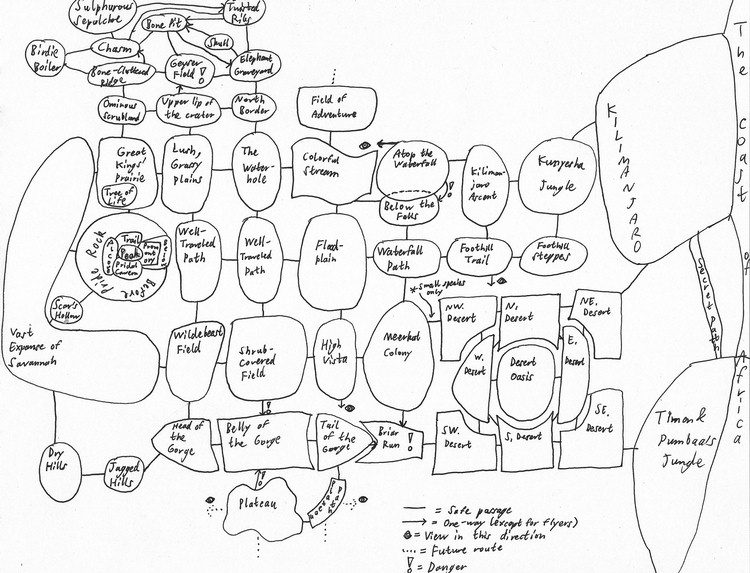 Sulphurous
Sepulchre
Twisted
Ribs
Bone Pit
Birdie
Boiler
Chasm
Skull
Geyser
Field !
Elephant
Graveyard
Bone-Cluttered
Ridge
Ominous
Scrubland
Upper lip of
the crater
North
Border
Field of
Adventure
Great
Kings'
Prairie
Tree of
Life
Lush,
Grassy
Plains
The
Water-
hole
Colorful
Stream
Atop the
Waterfall
!
Below the
Falls
Kiliman-
jaro
Ascent
Kunyesha
Jungle
KILIMANJARO
The coast of Africa
Secret path
Before Pride Rock
Trail
Peak
Pridal
Cavern
Prom
ont
ory
Well-
Traveled
Path
Well-
Traveled
Path
Flood-
plain
Waterfall
Path
Foothill
Trail
Foothill
Steppes
Scar's
Hollow
Vast
Expanse of
Savannah
Wildebeest
Field
Shrub-
Covered
Field
High
Vista
Meerkat
Colony
*Small species
only
NW.
Desert
N.
Desert
NE.
Desert
W.
Desert
Desert
Oasis
E.
Desert
SW.
Desert
S. Desert
SE.
Desert
Timon &
Pumbaa's
Jungle
Dry
Hills
Jagged
Hills
Head of
the
Gorge
Belly of
the Gorge
!
Tail
of the
Gorge
Briar
Run !
!
Plateau
— = Safe passage
→ = One-way (except for flyers)
= View in this direction
.... = Future route
! = Danger